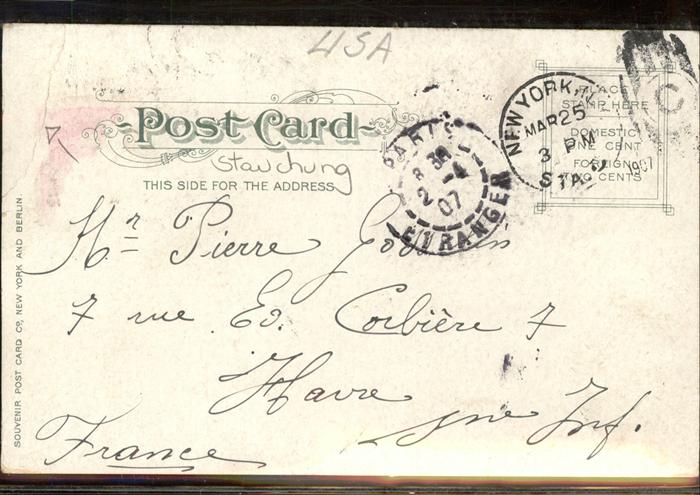 USA
Post Card
Stauchung
THIS SIDE FOR THE ADDRESS
PLACE
STAMP HERE
DOMESTIC
ONE CENT
FOREIGN
TWO CENTS
NEW YORK, N.Y.
MAR 25
3 PM
STA.
1907
C
PARIS
8 30
2 -4
07
ETRANGER
Mr Pierre
7 rue Ed. Corbière 7
Havre
Inf.
France
SOUVENIR POST CARD CO., NEW YORK AND BERLIN.